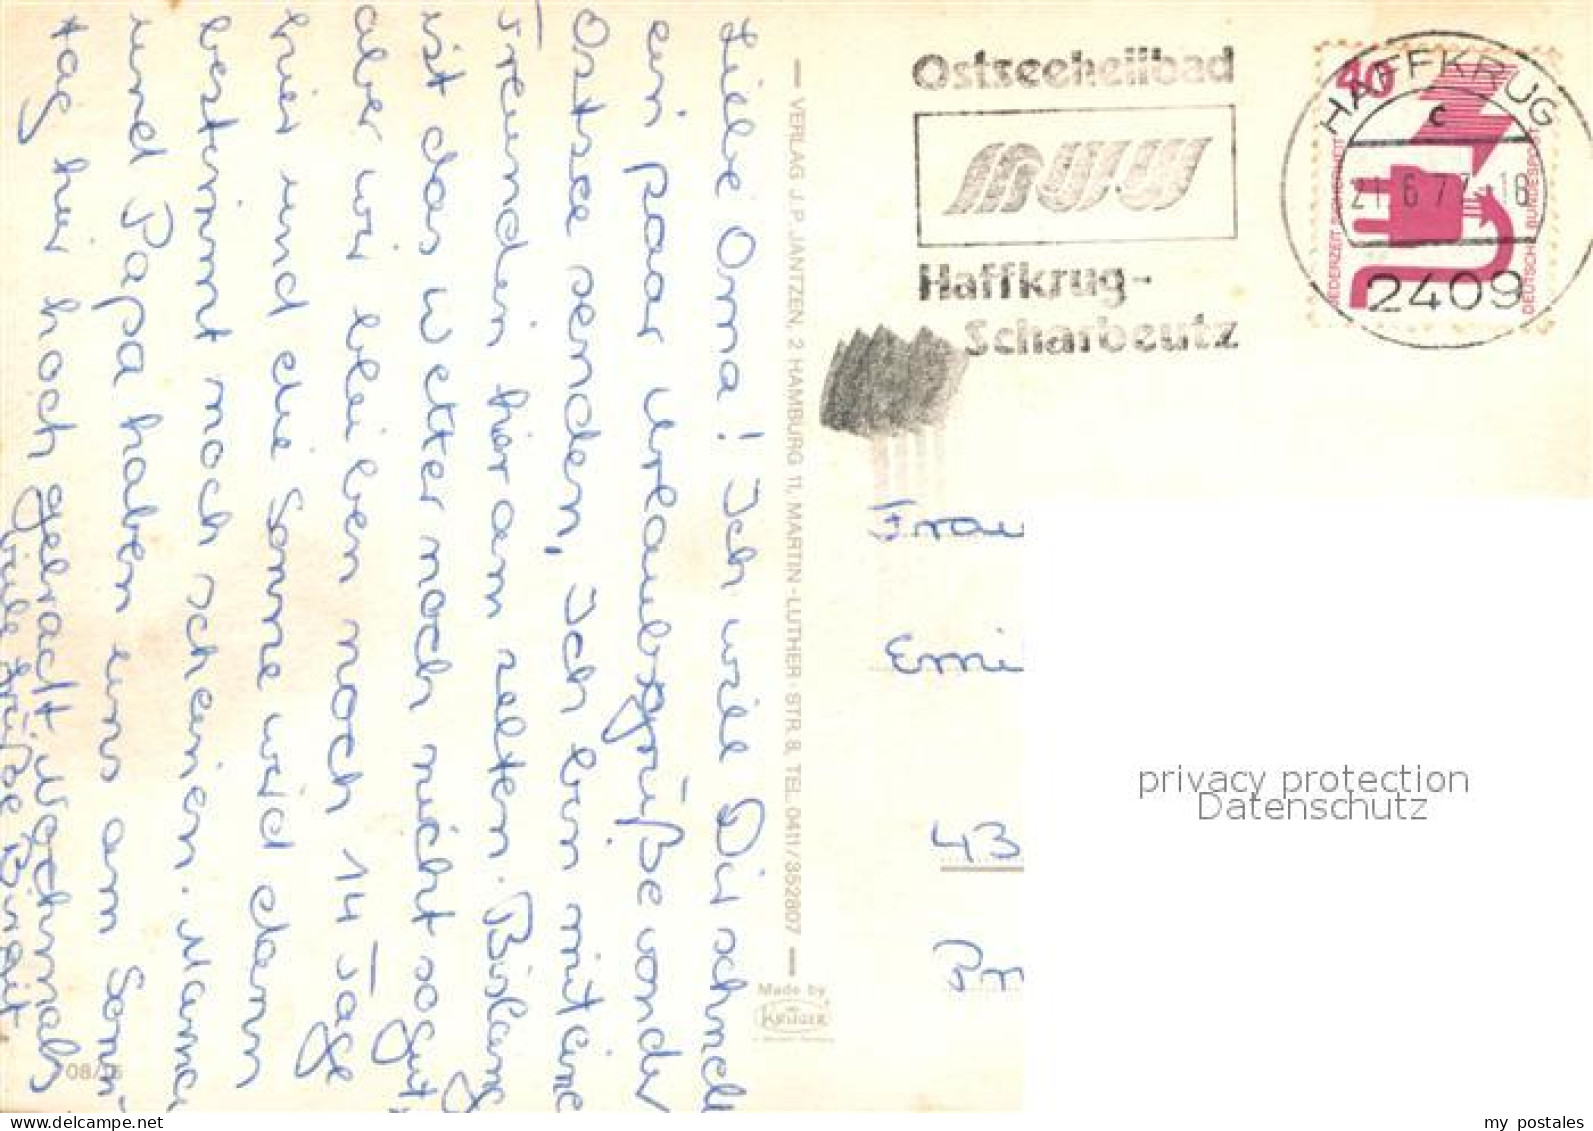 Liebe Oma! Ich will Dir schnell
ein paar Urlaubsgrüße von der
Ostsee senden, Ich bin mit eine
Freundin hier am selten. Bislang
ist das Wetter noch nicht so gut,
aber wir bleiben noch 14 Tage
hier und die Sonne wird dann
bestimmt noch scheinen. Mama
und Papa haben uns am Sonn-
tag hier hoch gebracht. Nochmals
viele Grüße Birgit
08/16
— VERLAG J. P. JANTZEN, 2 HAMBURG 11, MARTIN-LUTHER-STR. 8, TEL. 0411/352807 —
Made by
KRÜGER
Ostseeheilbad
Haffkrug-
Scharbeutz
40
JEDERZEIT SICHERHEIT
DEUTSCHE BUNDESPOST
HAFFKRUG
c
21.6.77-18
2409
Frau
Emi
43
privacy protection
Datenschutz
my postales